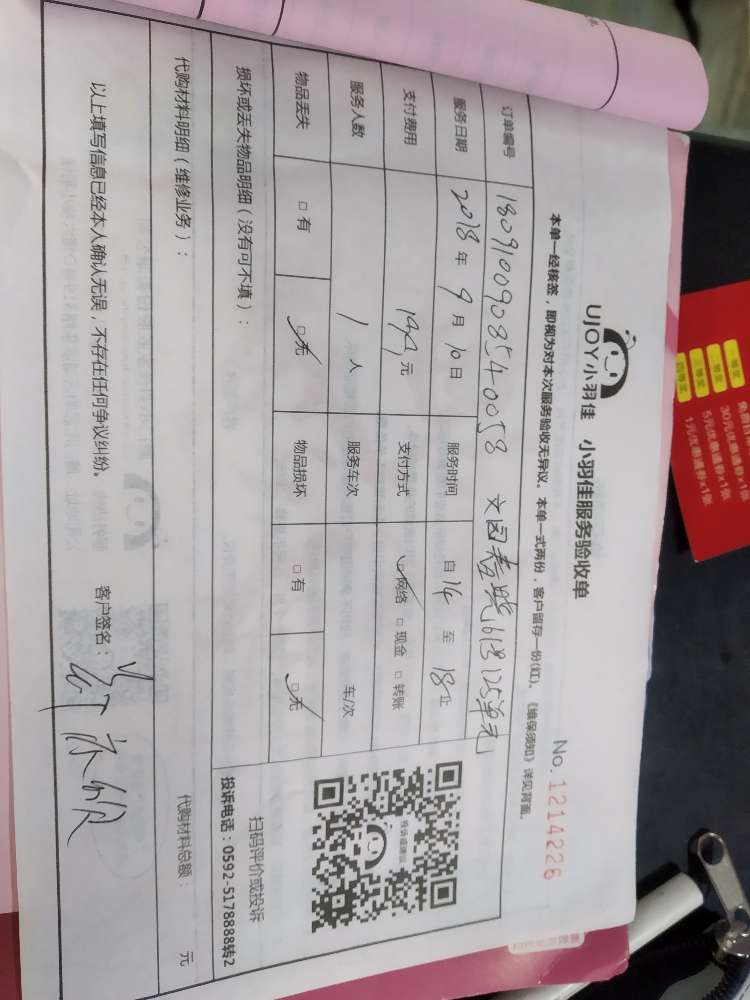 UJOY小羽佳 小羽佳服务验收单
No. 1214226
本单一经核签，即视为对本次服务验收无异议。本单一式两份，客户留存一份(红)。《维保须知》详见背面。
订单编号 180910090854 0058 文园春晓618 125单元
服务日期 2018年9月10日 服务时间 自14至18止
支付费用 元 支付方式 □网络 □现金 □转账
服务人数 1人 服务车次 车/次
物品丢失 □有 □无 物品损坏 □有 □无
扫码评价或投诉
投诉电话：0592-5178888转2
损坏或丢失物品明细（没有可不填）：
代购材料明细（维修业务）： 代购材料总额： 元
以上填写信息已经本人确认无误，不存在任何争议纠纷。 客户签名：
一等奖
二等奖 30元优惠通券×1张
三等奖 5元优惠通券×1张
四等奖 1元优惠通券×1张